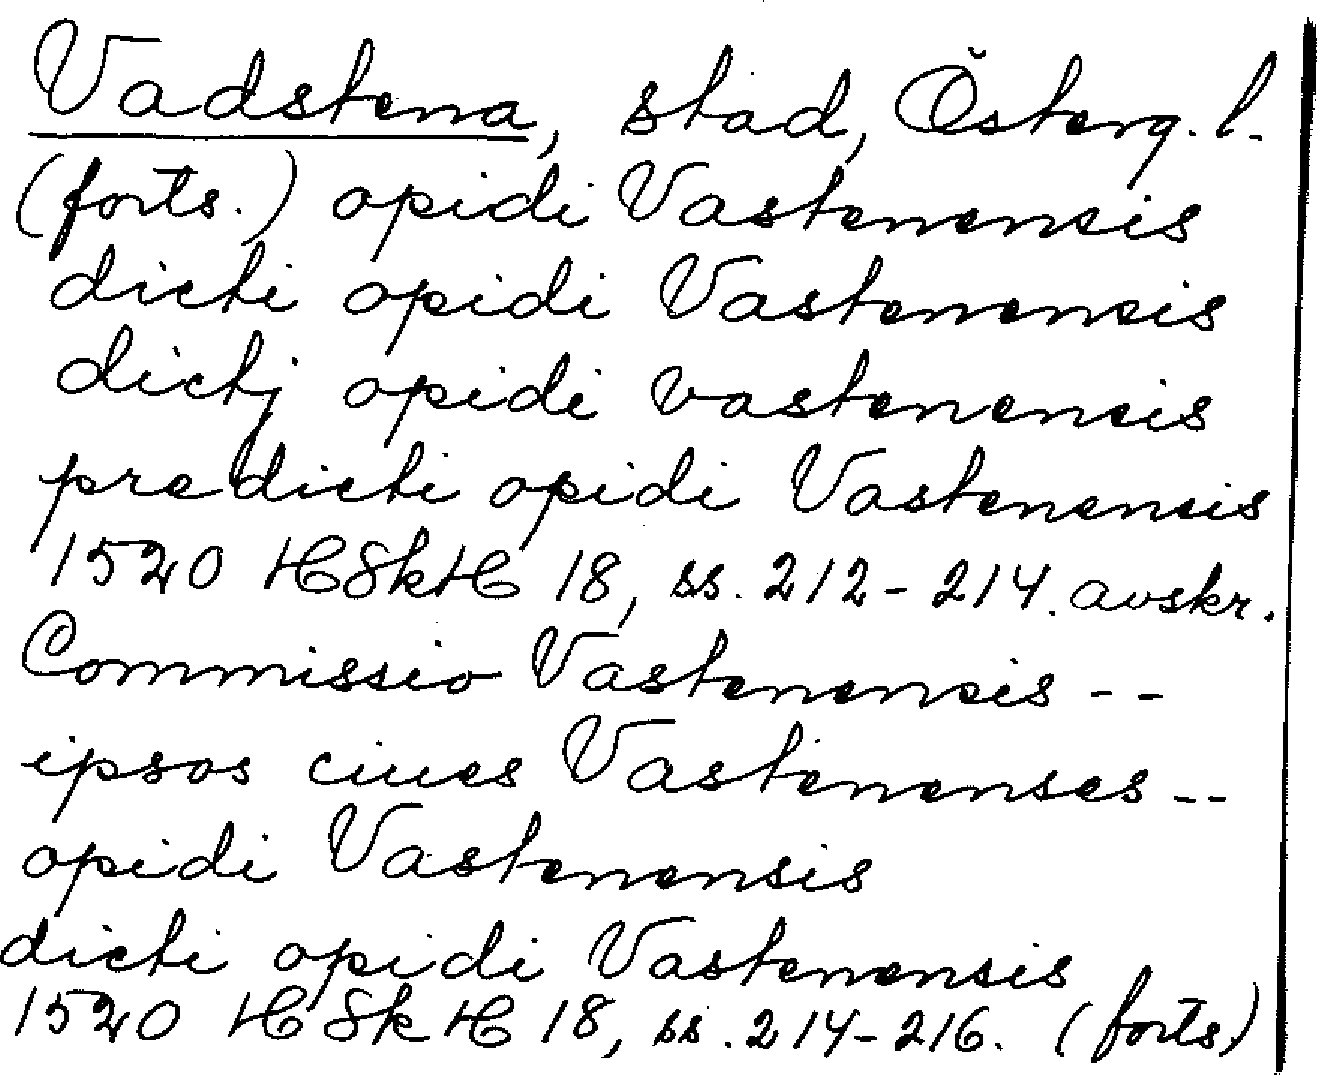 Vadstena, stad, Österg. l.
(forts.) opidi Vastenensis
dicti opidi Vastenensis
dictj opidi vastenensis
predicti opidi Vastenensis
1520 HSkH 18, ss. 212-214. avskr.
Commissio Vastenensis --
ipsos ciues Vastenenses --
opidi Vastenensis
dicti opidi Vastenensis
1520 HSkH 18, ss. 214-216. (forts)